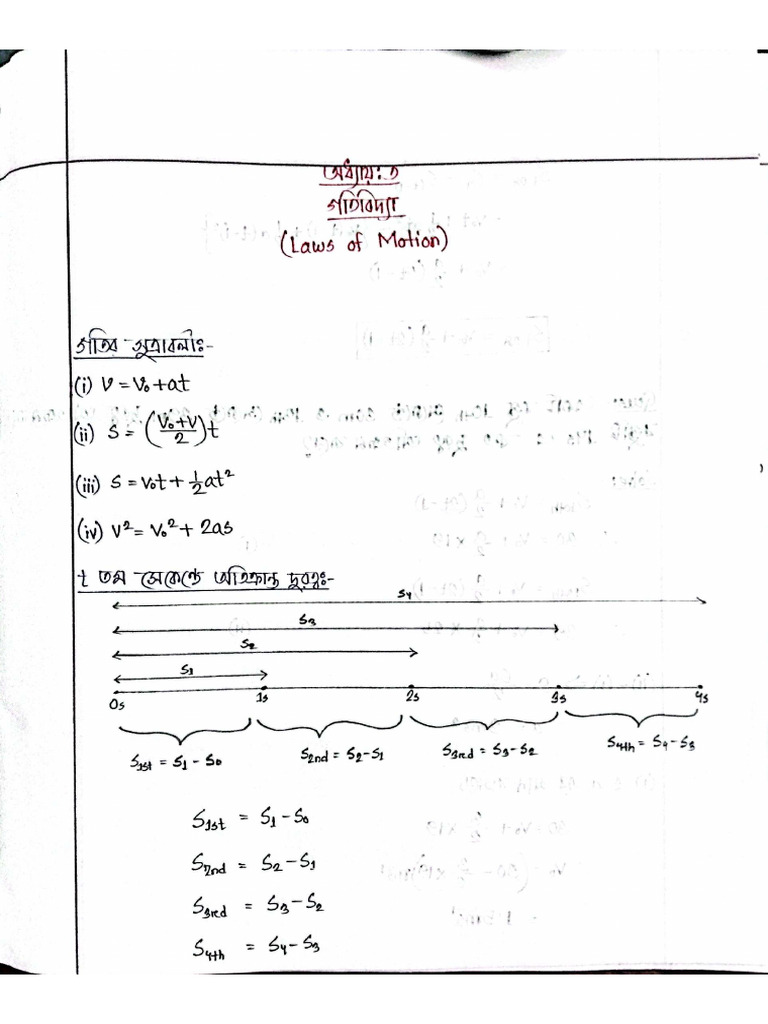 অধ্যায়: ৩
গতিবিদ্যা
(Laws of Motion)
গতির সূত্রাবলীঃ-
(i) V = V₀ + at
(ii) S = (V₀+V/2)t
(iii) S = V₀t + ½at²
(iv) V² = V₀² + 2as
t তম সেকেন্ডে অতিক্রান্ত দুরত্বঃ-
S₄
S₃
S₂
S₁
0s 1s 2s 3s 4s
S1st = S₁ - S₀ S2nd = S₂-S₁ S3red = S₃-S₂ S4th = S₄-S₃
S1st = S₁-S₀
S2nd = S₂-S₁
S3red = S₃-S₂
S4th = S₄-S₃